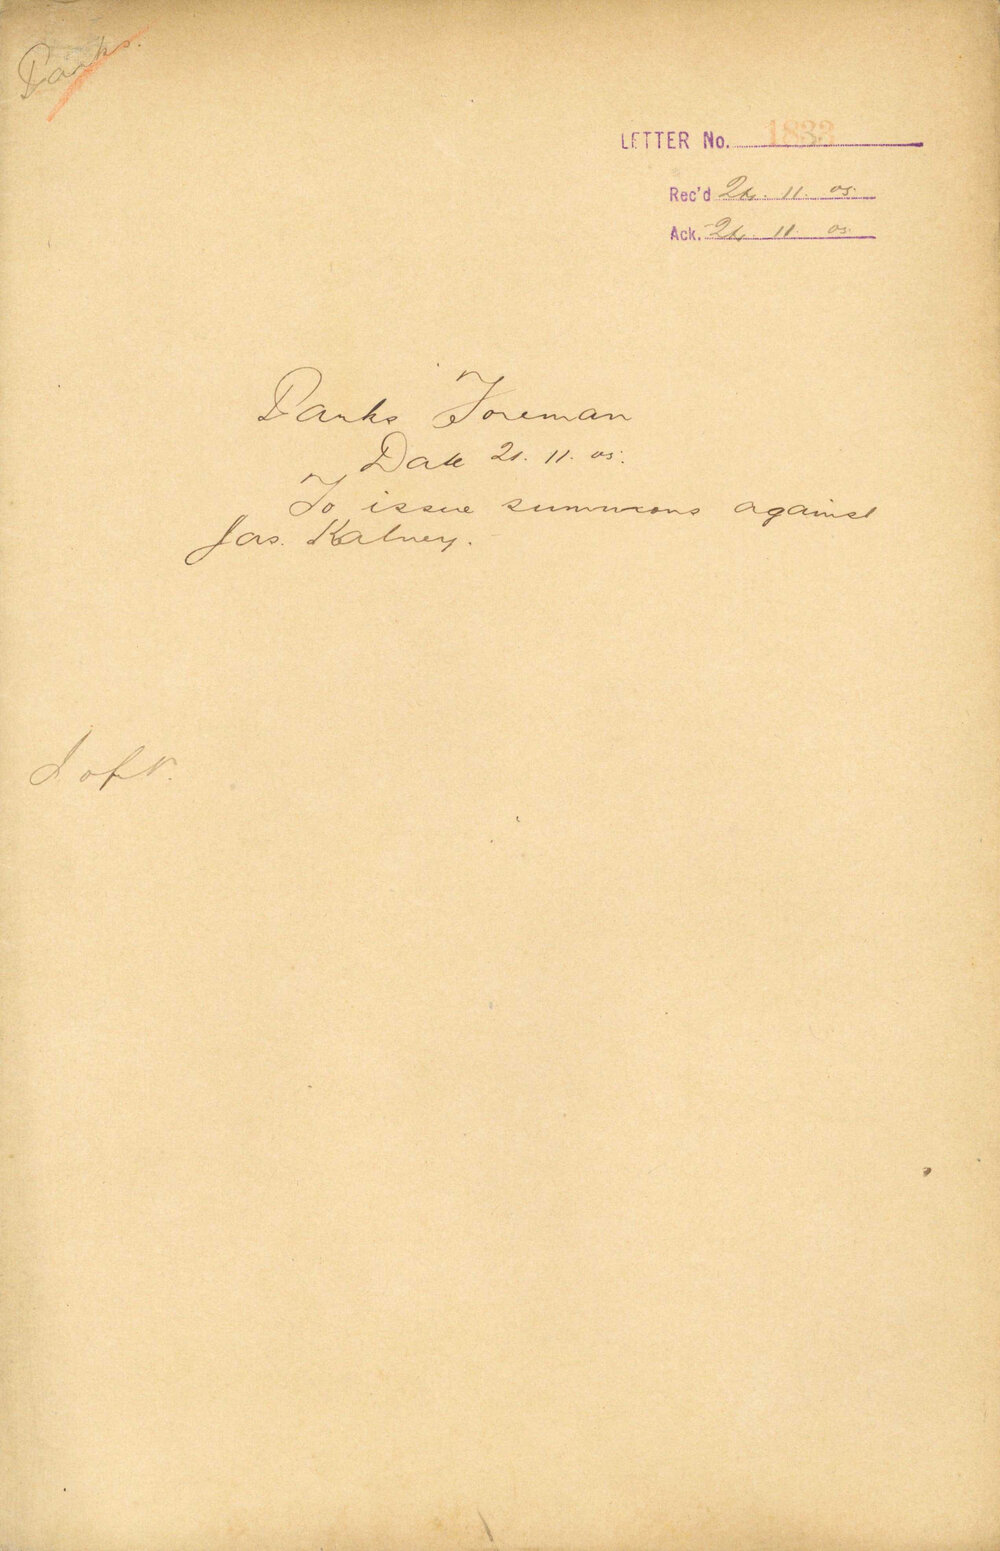 Parks.
LETTER No. 1833
Rec'd 24. 11. 05.
Ack. 24. 11. 05.
Parks Foreman
Date 21. 11. 05.
To issue summons against
Jas. Kalney.